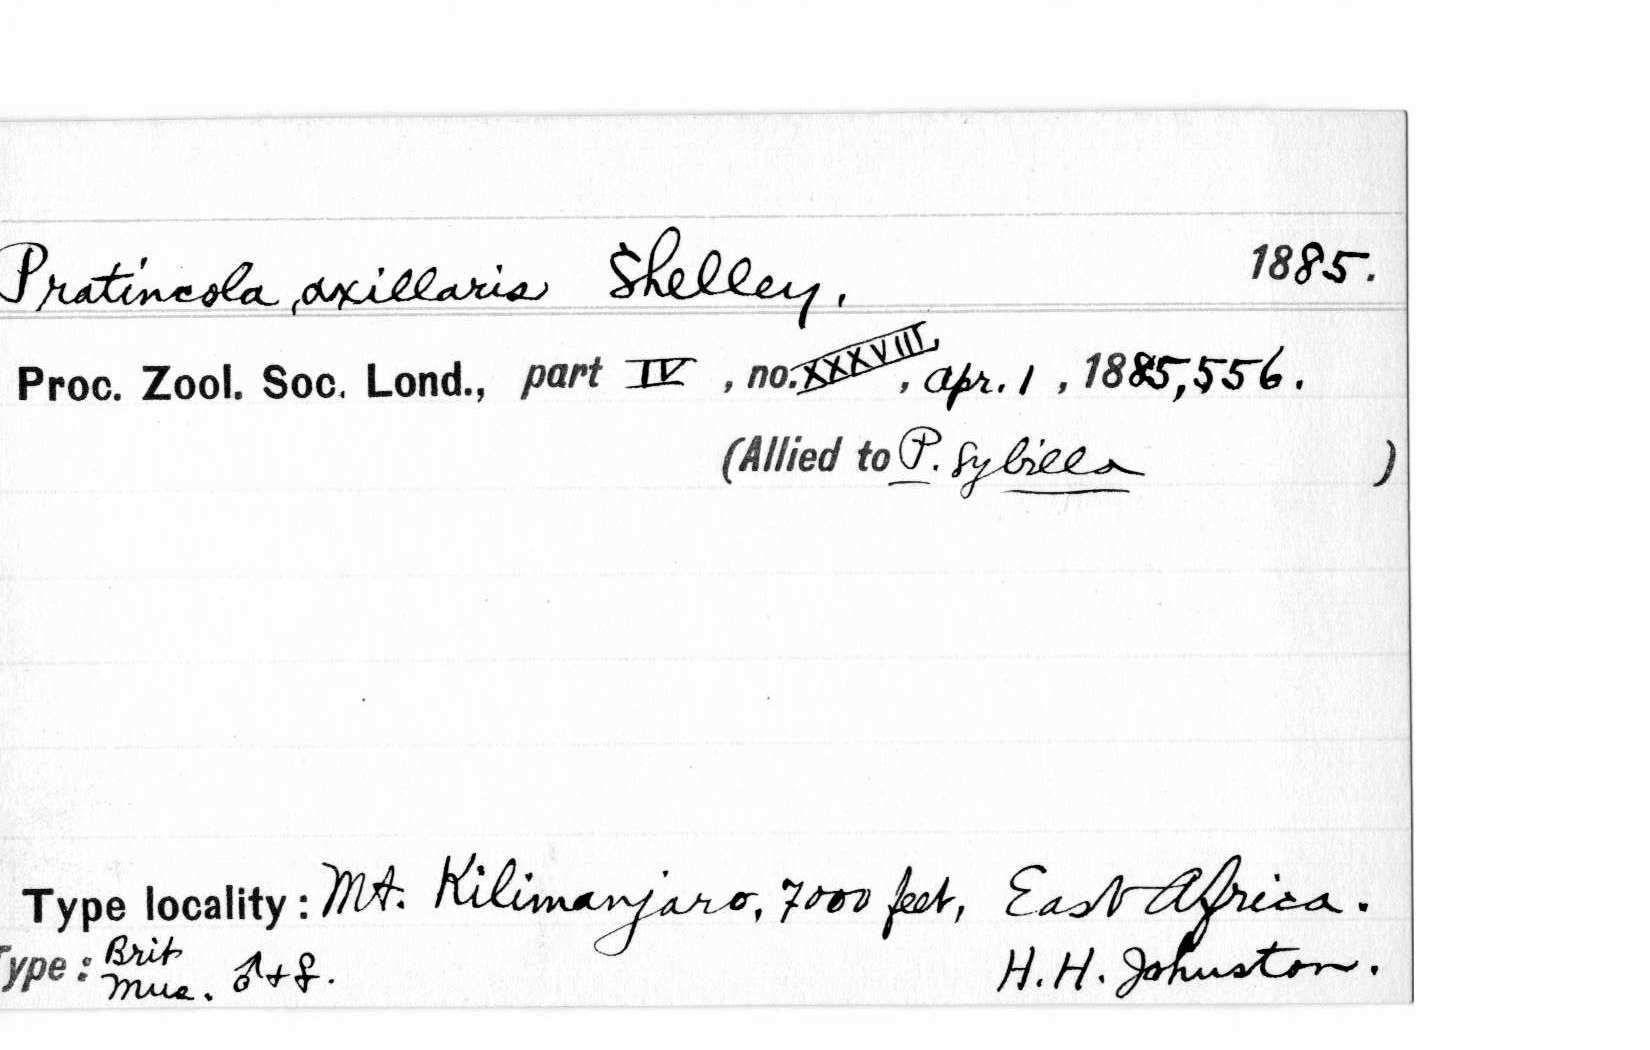 Pratincola axillaris Shelley, 1885.
Proc. Zool. Soc. Lond., part IV, no. XXXVIII, Apr. 1, 1885, 556.
(Allied to P. sybilla)
Type locality: Mt. Kilimanjaro, 7000 feet, East Africa.
Type: Brit Mus. ♂ + ♀. H. H. Johnston.